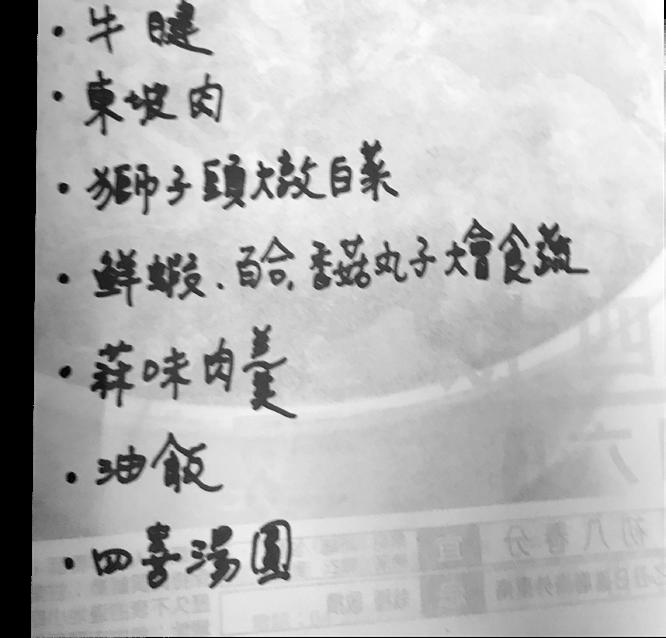 · 牛腱
· 東坡肉
· 獅子頭燉白菜
· 鮮蝦、百合、香菇丸子燴食蔬
· 蒜味肉羹
· 油飯
· 四喜湯圓
初八春分